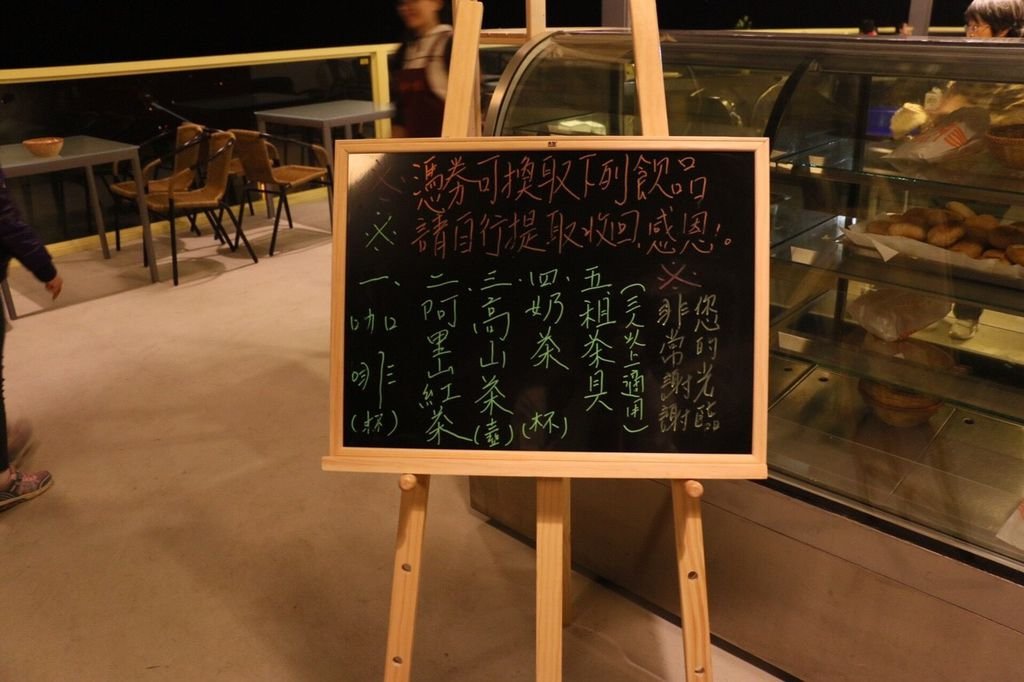 ※憑券可換取下列飲品
※請自行提取收回,感恩!。
一、咖啡(杯)
二、阿里山紅茶
三、高山茶(壺)
四、奶茶(杯)
五租茶具
(三人以上適用)
※非常謝謝
您的光臨